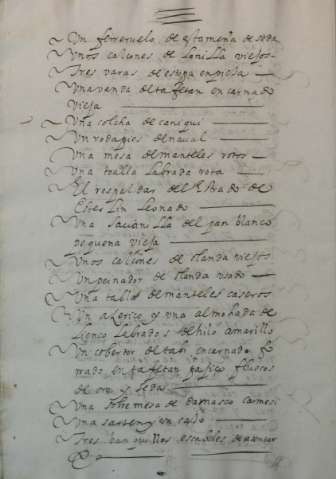 Un ferreruelo de estameña de seda
Unos calçones de lonilla viejos
Tres varas de estopa en pieça
Una vanda de tafetan encarnado
vieja
Una colcha de caniqui
Un rodapies de naual
Una mesa de manteles rotos
Una toalla labrada rota
El respaldar del estrado de
leonado
Una del pan blanco
pequeña vieja
Unos calçones de olanda viejos
Un peinador de olanda usado
Una tabla de manteles caseros
Un alerico y una almohada de
lienço labrados de hilo amarillo
Un cobertor de tabi encarnado
en tafetan pagiço fluecos
de oro y sedas
Una sobremesa de damasco carmesi
Una sarten y un caço
Tres banquillos